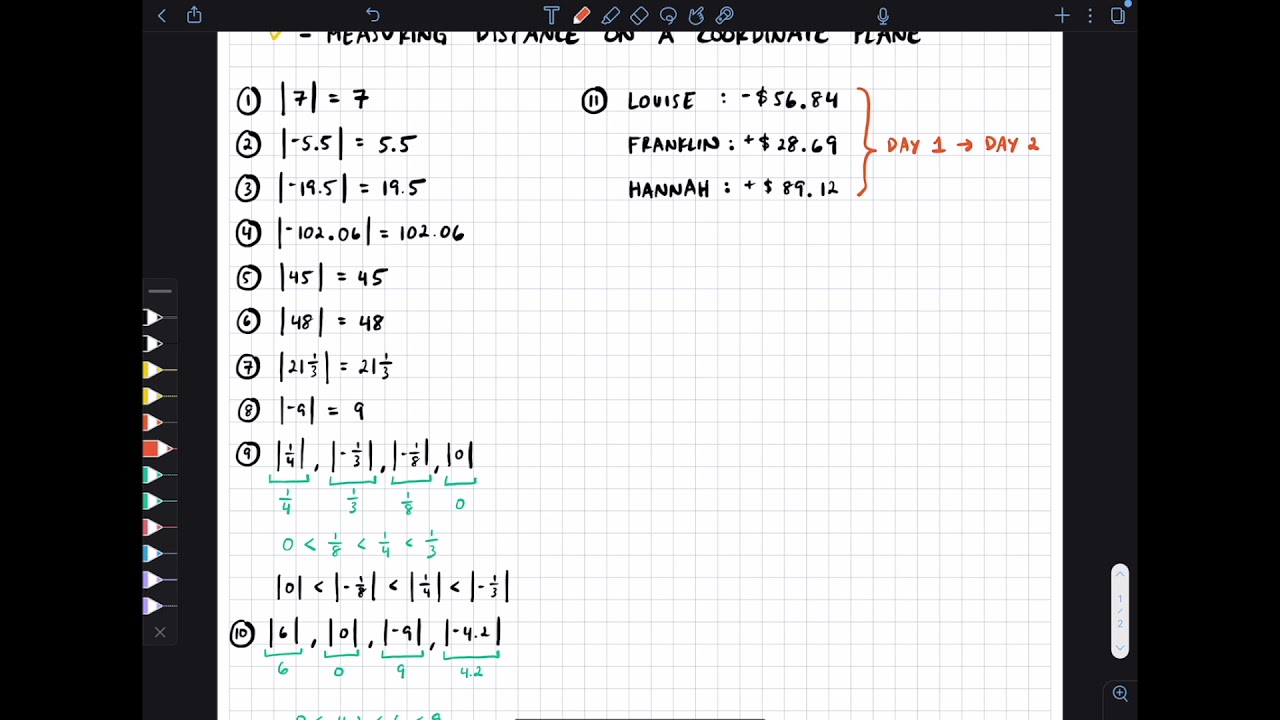 - MEASURING DISTANCE ON A COORDINATE PLANE
① |7| = 7
② |-5.5| = 5.5
③ |-19.5| = 19.5
④ |-102.06| = 102.06
⑤ |45| = 45
⑥ |48| = 48
⑦ |21 1/3| = 21 1/3
⑧ |-9| = 9
⑨ |1/4|, |-1/3|, |-1/8|, |0|
1/4 1/3 1/8 0
0 < 1/8 < 1/4 < 1/3
|0| < |-1/8| < |1/4| < |-1/3|
⑩ |6|, |0|, |-9|, |-4.2|
6 0 9 4.2
0 < 4.2 < 6 < 9
⑪ LOUISE : -$56.84
FRANKLIN : +$28.69
HANNAH : +$89.12
DAY 1 → DAY 2
T
1/2